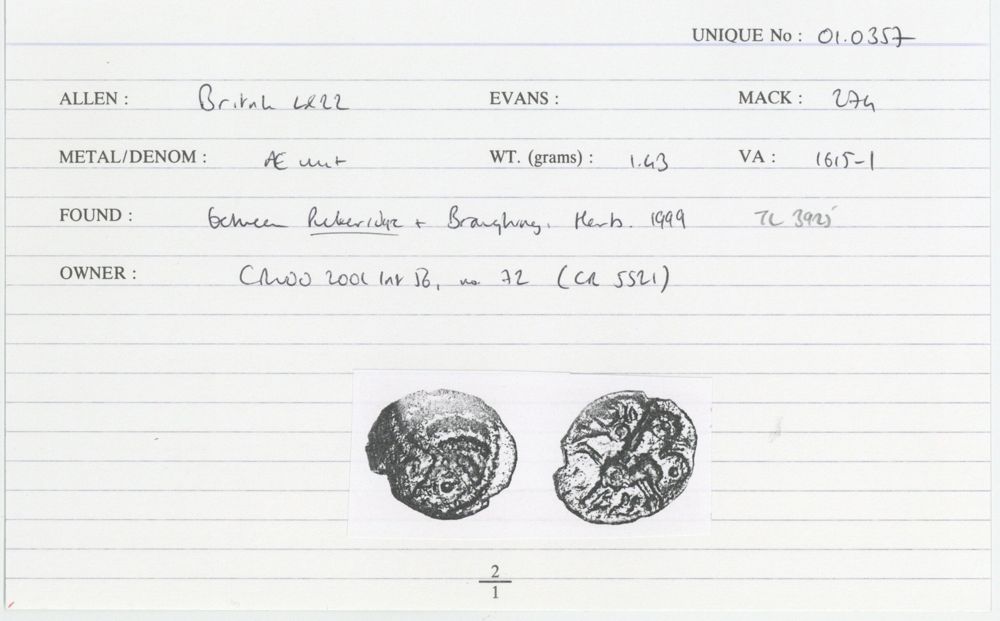 UNIQUE No : 01.0357
ALLEN : British LX22 EVANS : MACK : 274
METAL/DENOM : Æ unit WT. (grams) : 1.43 VA : 1615-1
FOUND : between Puckeridge + Braughing, Herts. 1999 TL 3925
OWNER : 2001 no. 72 (CR 5521)
2
1